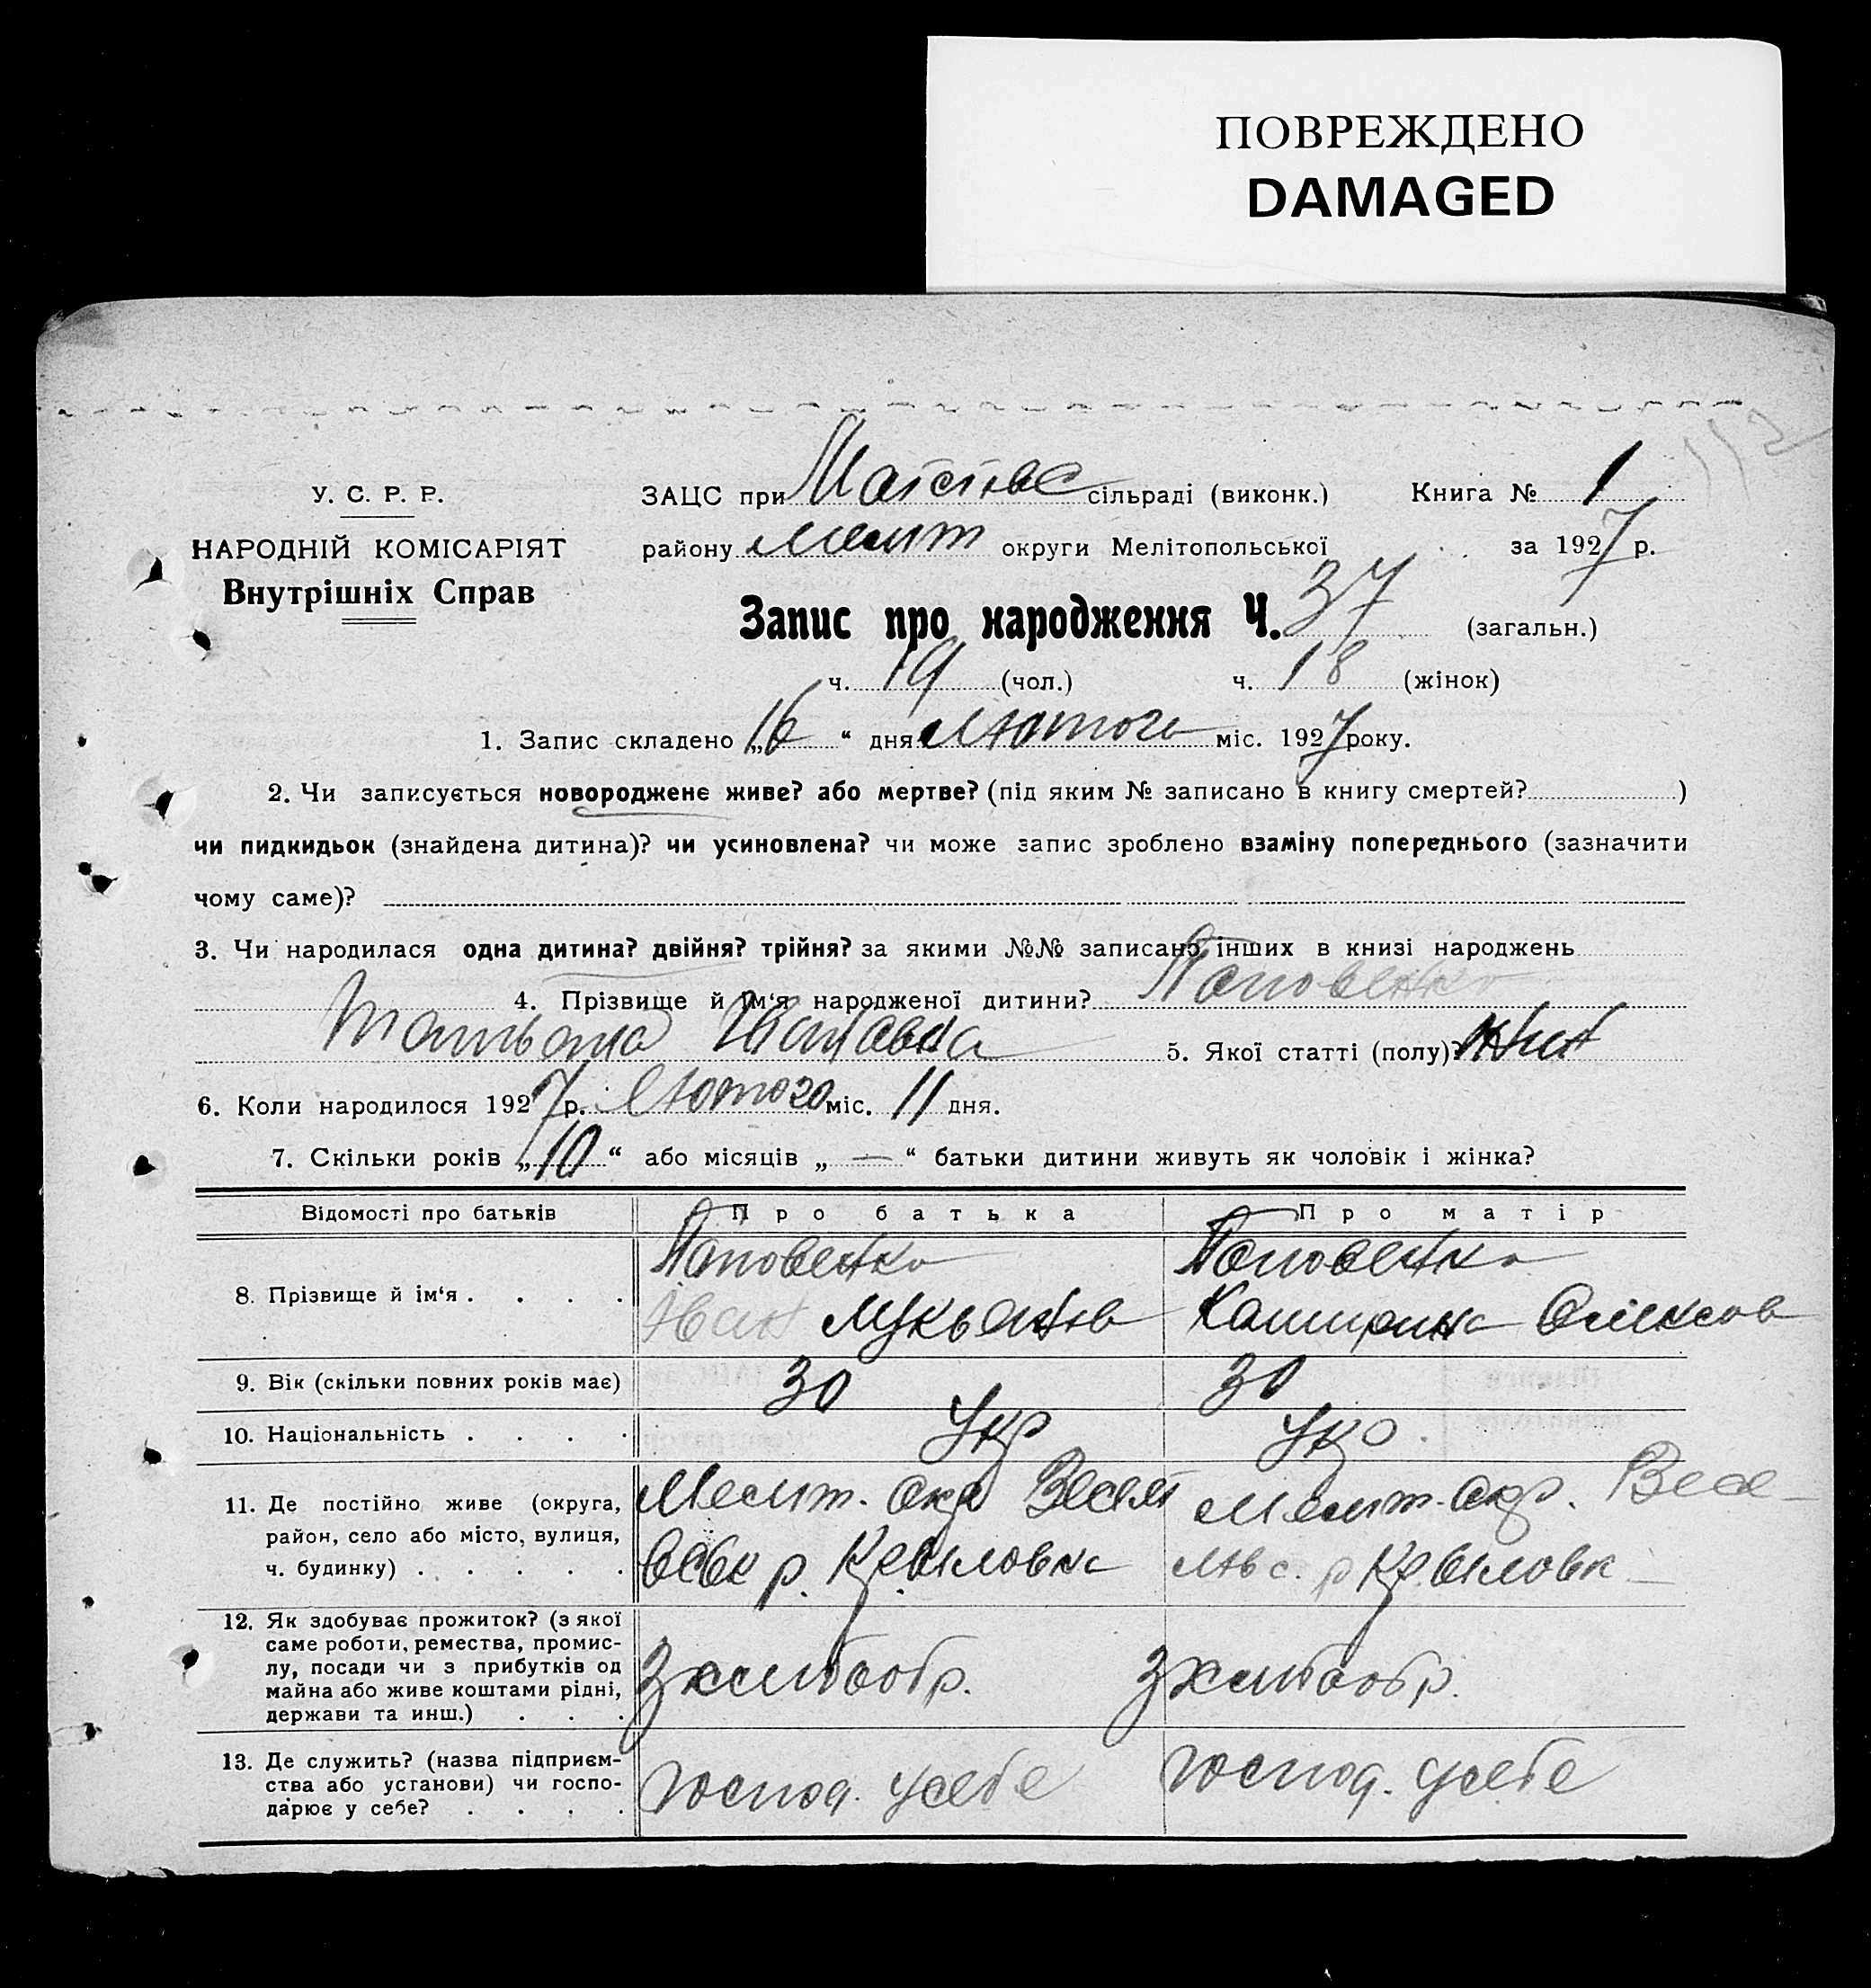 ПОВРЕЖДЕНО
DAMAGED
У. С. Р. Р.
НАРОДНІЙ КОМІСАРІЯТ
Внутрішніх Справ
ЗАЦС при сільраді (виконк.) Книга № 1
району Меліт округи Мелітопольської за 1927 р.
Запис про народження Ч. 37 (загальн.)
ч. 19 (чол.) ч. 18 (жінок)
1. Запис складено „16“ дня Лютого міс. 1927 року.
2. Чи записується новороджене живе? або мертве? (під яким № записано в книгу смертей? )
чи пидкидьок (знайдена дитина)? чи усиновлена? чи може запис зроблено взаміну попереднього (зазначити
чому саме)?
3. Чи народилася одна дитина? двійня? трійня? за якими №№ записано інших в книзі народжень
4. Прізвище й ім‘я народженої дитини? Поповенко
Татьяна Ивановна 5. Якої статті (полу)? жін
6. Коли народилося 1927 р. Лютого міс. 11 дня.
7. Скільки років „10“ або місяців „—“ батьки дитини живуть як чоловік і жінка?
Відомості про батьків Про батька Про матір
8. Прізвище й ім‘я . . . . Поповенко Поповенко
Іван Лукьянов Катерина Олексов
9. Вік (скільки повних років має) 30 30
10. Національність . . . . Укр Укр.
11. Де постійно живе (округа, район, село або місто, вулиця, ч. будинку) . . . . . Меліт. окр Весел Меліт. окр. Весе-
р. р
12. Як здобуває прожиток? (з якої саме роботи, ремества, промислу, посади чи з прибутків од майна або живе коштами рідні, держави та инш.) . . . З хлібобр. З хлібобр.
13. Де служить? (назва підприємства або установи) чи господарює у себе? . . . . Господ. у себе Господ. у себе